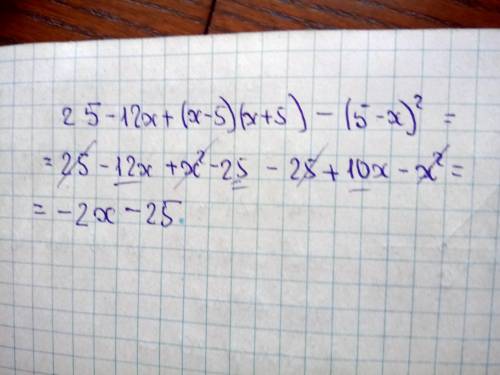 25-12x+(x-5)(x+5)-(5-x)²=
=25-12x+x²-25-25+10x-x²=
=-2x-25.